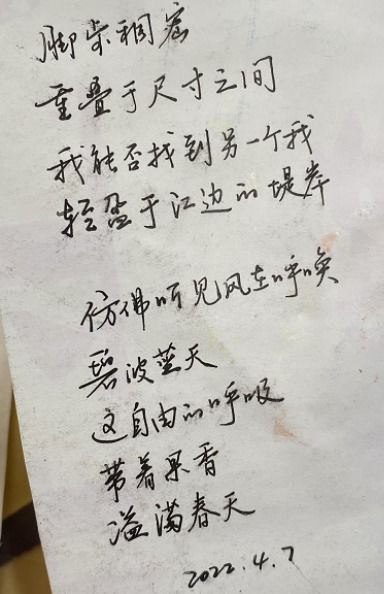 脚步稠密
重叠于尺寸之间
我能否找到另一个我
轻盈于江边的堤岸
仿佛听见风在呼唤
碧波蓝天
这自由的呼吸
带着果香
溢满春天
2022.4.7